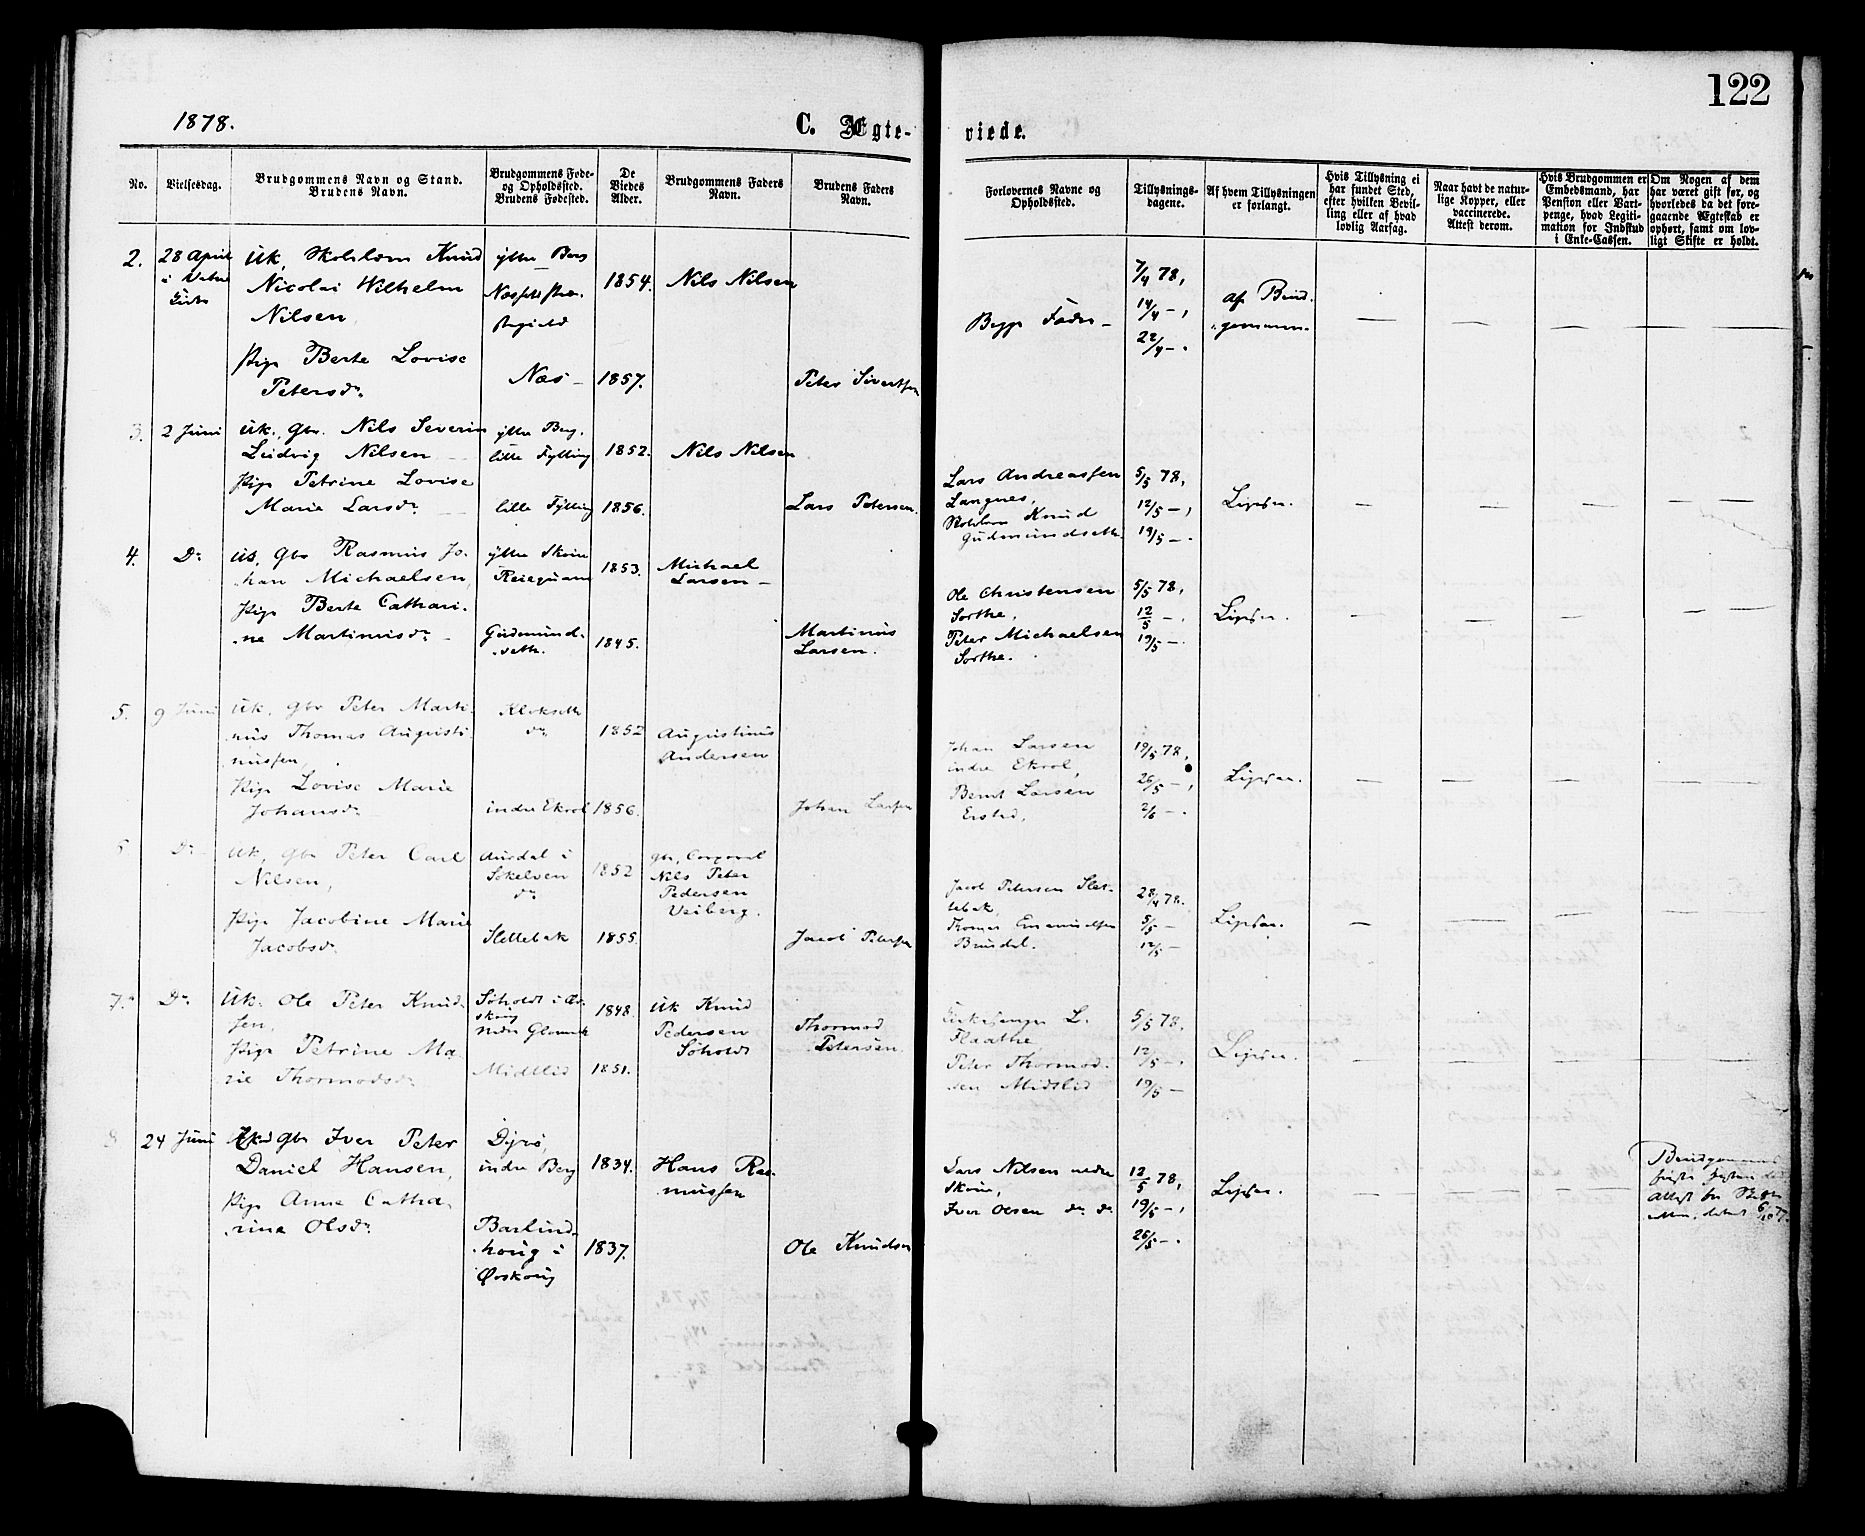 122
1878.
C. Ægte-
viede.
No.
Vielsesdag.
Brudgommens Navn og Stand.
Brudens Navn.
Brudgommens Føde-
og Opholdssted.
Brudens Fødested.
De
Viedes
Alder.
Brudgommens Faders
Navn.
Brudens Faders
Navn.
Forlovernes Navne og
Opholdssted.
Tillysnings-
dagene.
Af hvem Tillysningen
er forlangt.
Hvis Tillysning ei
har fundet Sted,
efter hvilken Bevil-
ling eller af hvad
lovlig Aarsag.
Naar havt de natur-
lige Kopper, eller
vaccinerede.
Attest derom.
Hvis Brudgommen er
Embedsmand, har
Pension eller Vart-
penge, hvad Legiti-
mation for Indskud
i Enke-Cassen.
Om Nogen af dem
har været gift før, og
hvorledes da det fore-
gaaende Ægteskab er
ophørt, samt om lov-
ligt Skifte er holdt.
2.
28 April
i Vatne
Uk. Skolelærer Knud
Nicolai Wilhelm
Nilsen
Pige Berte Lovise
Petersdr
ytre Berg
Næs
1854.
1857.
Nils Nilsen
Peter Sivertsen
Begge Fædre –
7/4 78,
14/4 –,
22/4 –.
af Brud-
gommen.
3.
2 Juni
Uk., Gbr. Nils Severin
Ludvig Nilsen
Pige Petrine Lovise
Marie Larsdr
ytre Berg.
lille Fylling
lille Fylling
1852.
1856.
Nils Nilsen
Lars Petersen.
Lars Andreassen
Langnes,
Knud
Gudmundseth.
5/5 78,
12/5 –,
19/5 –.
Ligesaa.
4.
Do
Uk, Gbr Rasmus Jo-
han Michaelsen,
Pige Berte Cathari-
ne Martinusdr
ytre Skeie
Gudmund-
seth.
1853.
1845.
Michael
Larsen –
Martinus
Larsen.
Ole Christensen
Sorthe,
Peter Michaelsen
Sorthe.
5/5 78,
12/5 –,
19/5 –.
Ligesaa.
5.
9 Juni
Uk, Gbr Peter Marti-
nus Thomas Augusti-
nussen,
Pige Lovise Marie
Johansdr
Klokseth
do
indre Ekrol
1852
1856.
Augustinus
Andersen
Johan Larsen
Johan Larsen
indre Ekrol,
Bernt Larsen
19/5 78,
26/5 –,
2/6 –.
Ligesaa.
Do
Uk, Gbr Peter Carl
Nilsen,
Pige Jacobine Marie
Jacobsdr
Søkelven
do
Slettebak
1852
1855.
Gbr, Corporal
Nils Peter
Pedersen
Veiberg.
Jacob Petersen
Jacob Petersen Slet-
tebak,
28/4 78.
5/5 –
12/5 –
Ligesaa.
7.
Do
Uk. Ole Peter Knud-
sen,
Pige Petrine Ma-
rie Thormodsdr
Søholdt i Ør-
skoug
Midtlid
1848.
1851.
Uk Knud
Pedersen
Søholdt
Thormod
Petersen
Kirkesanger L.
Flaathe
Peter Thormod-
sen Midtlid
5/5 78,
12/5 –,
19/5 –
Ligesaa.
8
24 Juni
Gbr Iver Peter
Daniel Hansen,
Pige Anne Catha-
rina Olsdr
indre Berg
Barlind-
houg i
Ørskoug
1834.
1837.
Hans Ras-
mussen
Ole Knudsen
Lars Nilsen nedre
Skeie,
Iver Olsen do do
12/5 78,
19/5 –,
26/5 –.
Ligesaa.